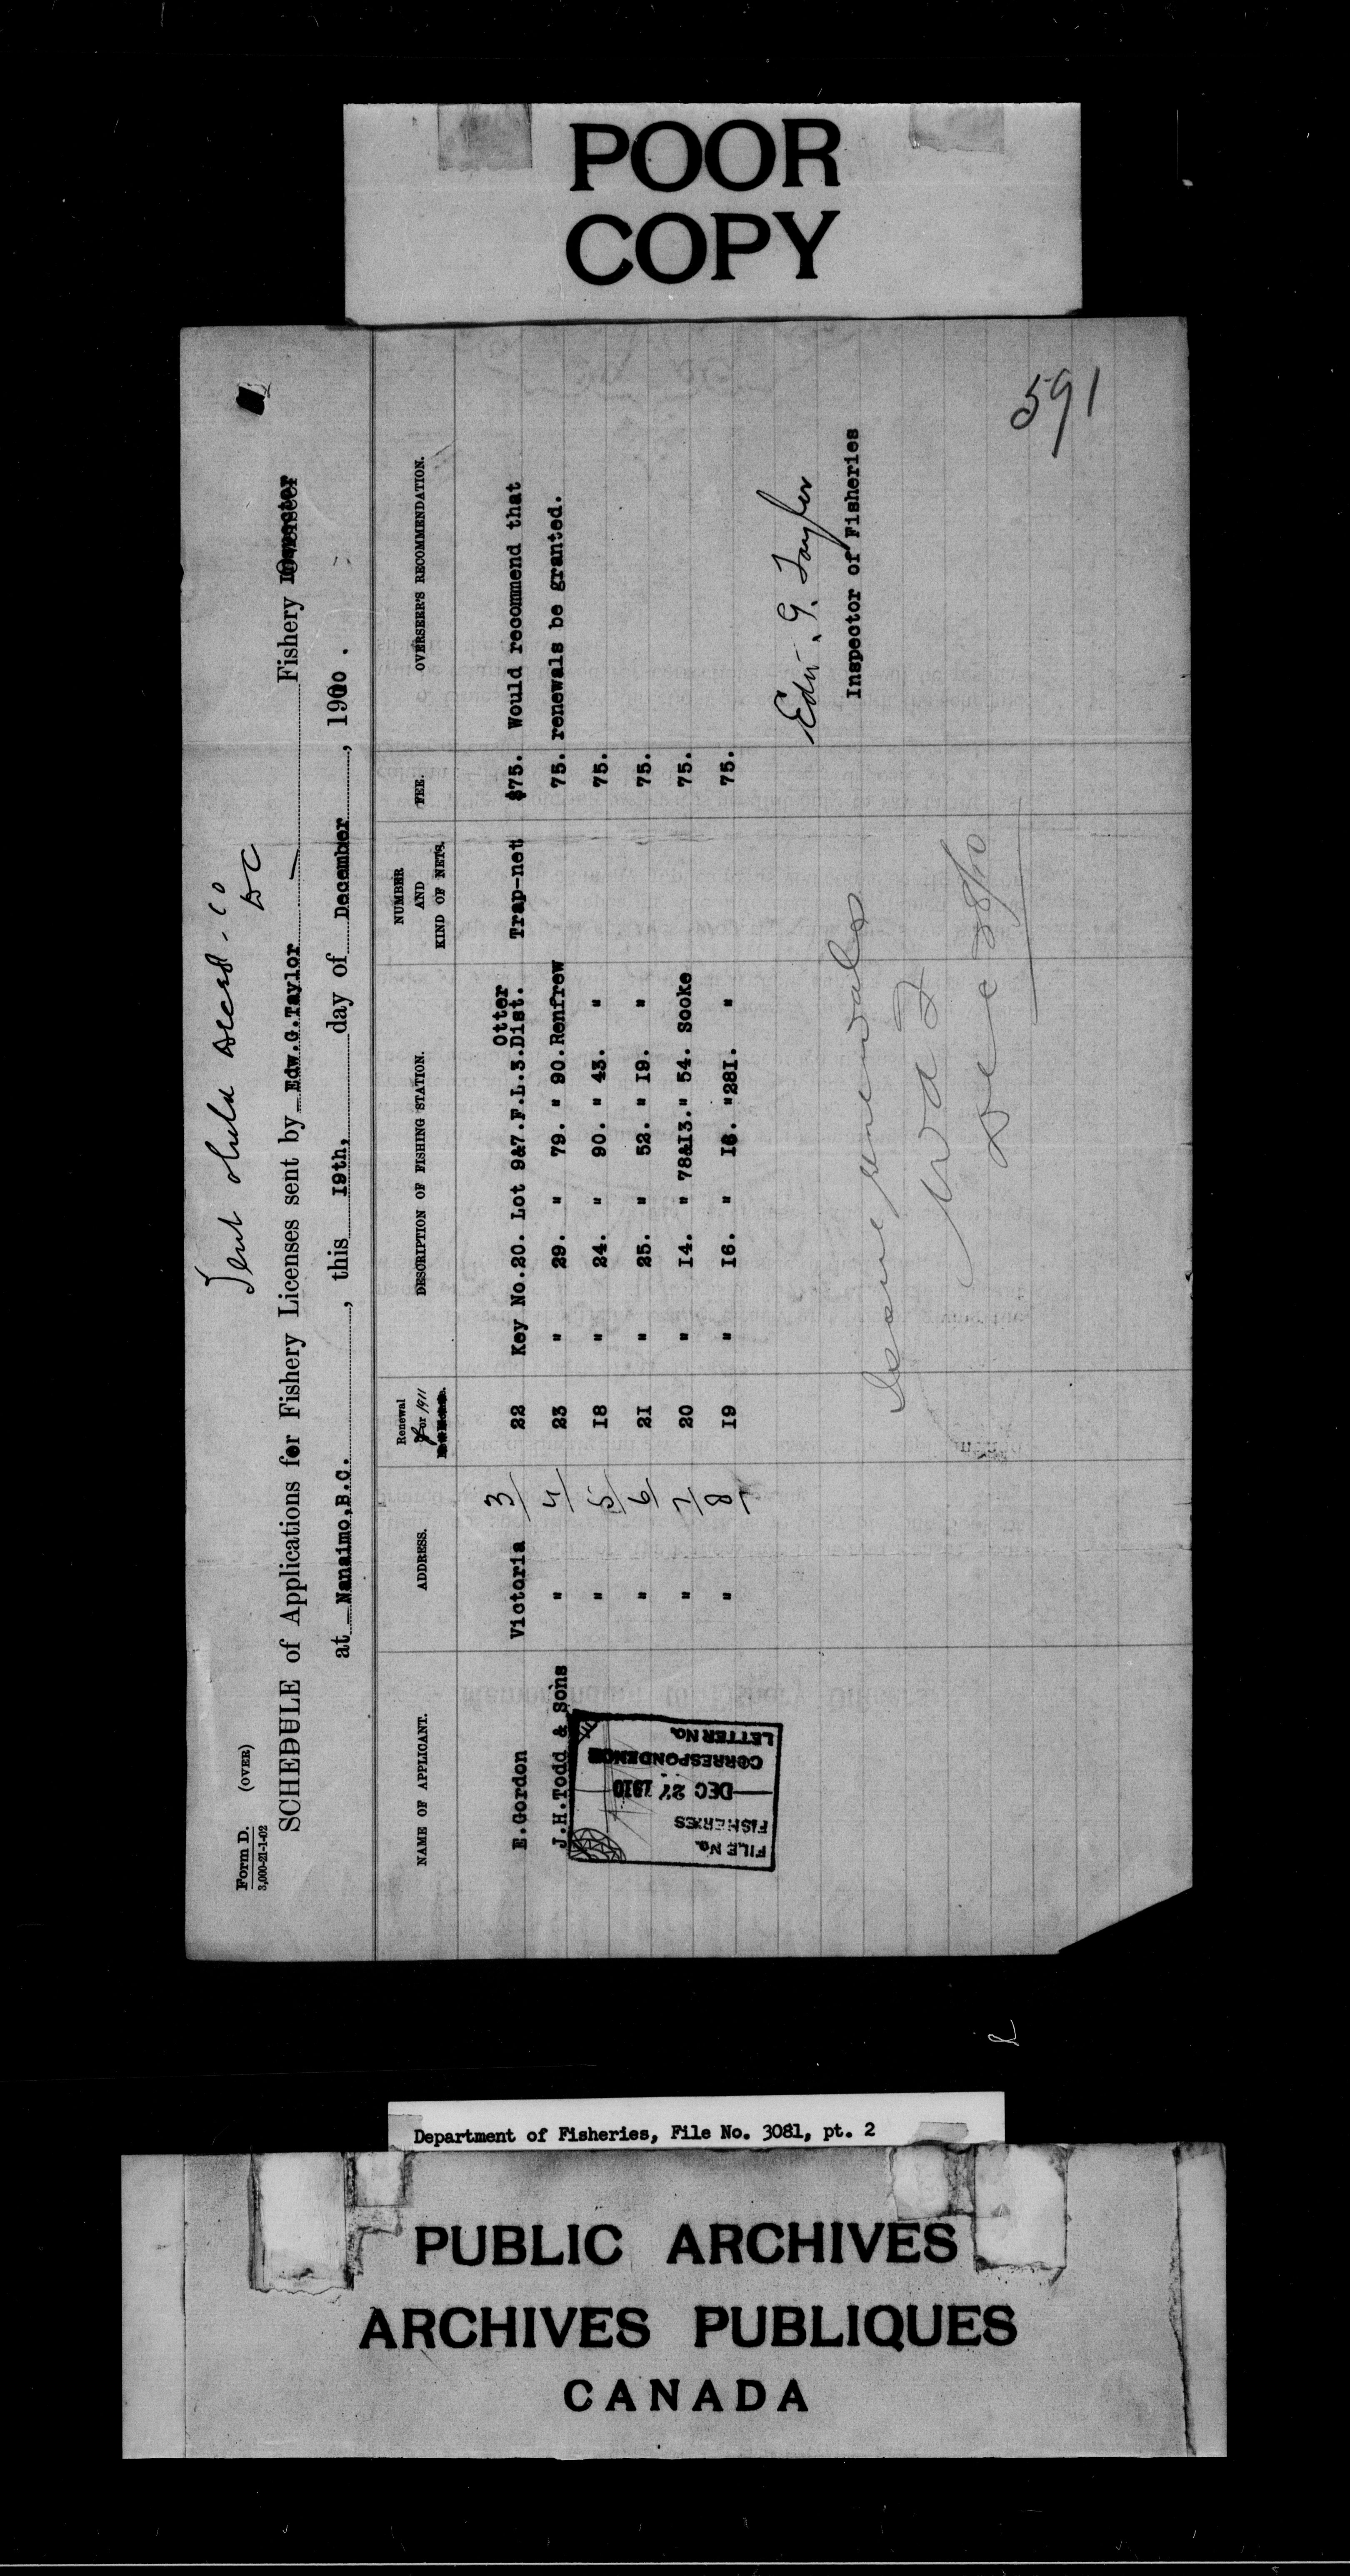 POOR
COPY
Form D. (OVER)
3,000-21-1-02
SCHEDULE of Applications for Fishery Licenses sent by Edw.G.Taylor Fishery
at Nanaimo,B.C. , this 19th, day of December , 1910 .
NAME OF APPLICANT. ADDRESS. Renewal for 1911 DESCRIPTION OF FISHING STATION. NUMBER AND KIND OF NETS. FEE. OVERSEER'S RECOMMENDATION.
Otter
E.Gordon Victoria 3/ 22 Key No.20. Lot 9&7.F.L.3.Dist. Trap-net $75. Would recommend that
J.H.Todd & Sons " 4/ 23 " 29. " 79. " 90.Renfrew 75. renewals be granted.
" 5/ 18 " 24. " 90. " 43. " 75.
" 6/ 21 " 25. " 52. " 19. " 75.
" 7/ 20 " 14. " 78&13." 54. Sooke 75.
" 8/ 19 " 16. " 16. "281. " 75.
Edw. G. Taylor
Inspector of Fisheries
FILE No.
FISHERIES
DEC 27 1910
CORRESPONDENCE
LETTER No.
Issue renewals
Dec 28/10
591
Department of Fisheries, File No. 3081, pt. 2
PUBLIC ARCHIVES
ARCHIVES PUBLIQUES
CANADA